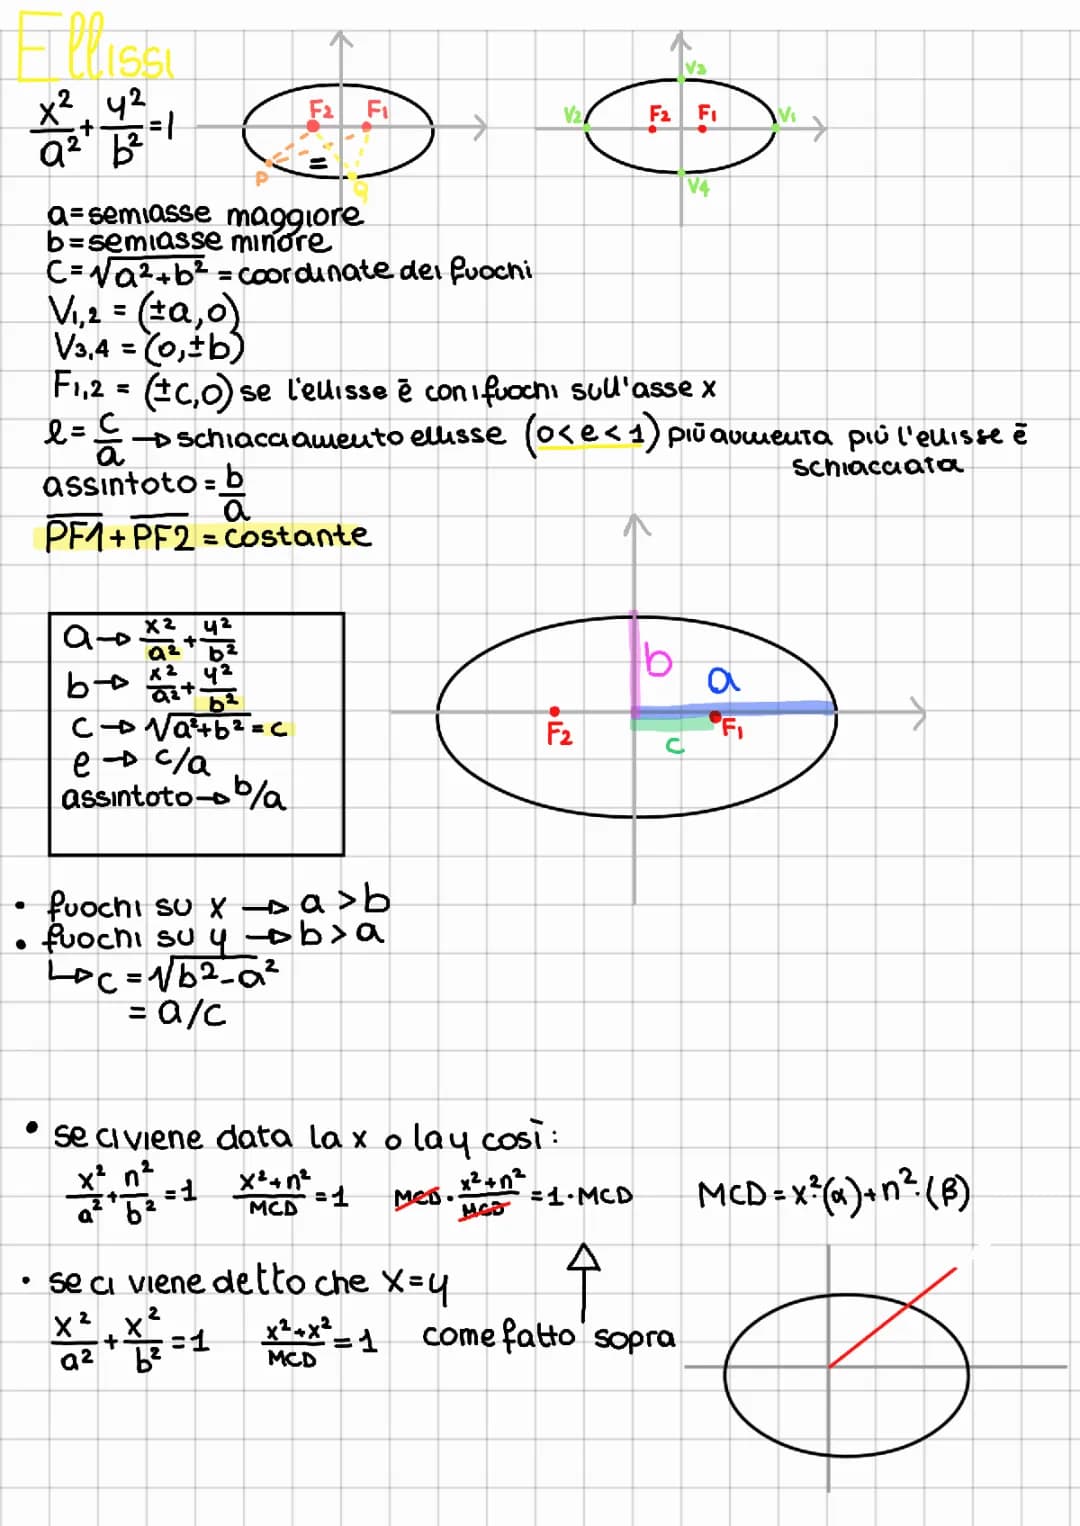 Ellissi
x²/a² + y²/b² = 1
F2 F1
P = Q
V3
V2 F2 F1 V1
V4
a = semiasse maggiore
b = semiasse minore
C = √a²+b² = coordinate dei fuochi
V1,2 = (±a,0)
V3,4 = (0,±b)
F1,2 = (±c,0) se l'ellisse è con i fuochi sull'asse x
e = c/a → schiacciamento ellisse (0<e<1) più aumenta più l'ellisse è
schiacciata
assintoto = b/a
PF1 + PF2 = costante
a → x²/a² + y²/b²
b → x²/a² + y²/b²
c → √a²+b² = c
e → c/a
assintoto → b/a
b
a
F2 F1
c
• fuochi su x → a > b
• fuochi su y → b > a
↳ c = √b²-a²
= a/c
• se ci viene data la x o la y così:
x²/a² + n²/b² = 1 x²+n²/MCD = 1 MCD · x²+n²/MCD = 1·MCD MCD = x²·(α)+n²·(β)
• se ci viene detto che x=y
x²/a² + x²/b² = 1 x²+x²/MCD = 1 come fatto sopra